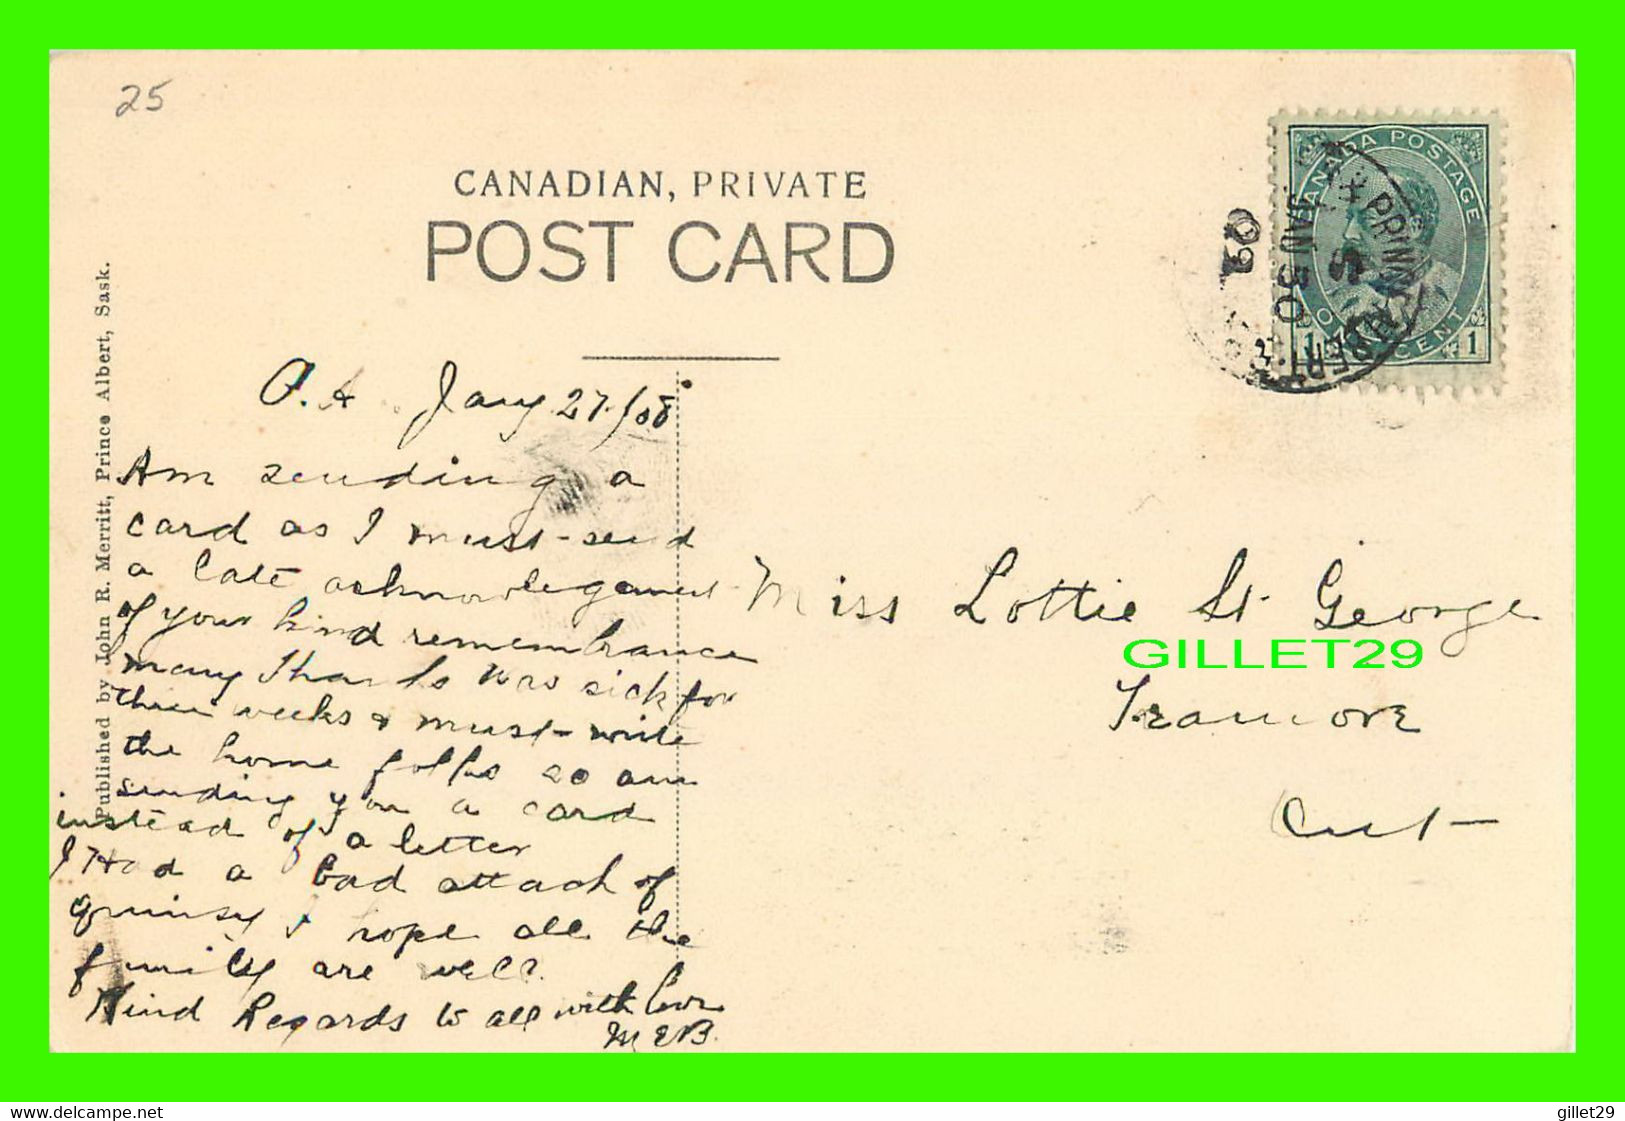 25
CANADIAN, PRIVATE
POST CARD
Published by John R. Merritt, Prince Albert, Sask.
CANADA POSTAGE
ONE CENT
1 1
PRINCE ALBERT
JAN 30
09
P.A. Jany 27/08
Am sending a
card as I must send
a late acknowlegement
of your kind remembrance
many thanks Was sick for
three weeks & must write
the home folks so am
sending you a card
instead of a letter
I Had a bad attack of
quinsy I hope all the
family are well.
Kind Regards to all with love
M E B.
Miss Lottie St. George
Framore
Ont
GILLET29
delcampe.net
gillet29